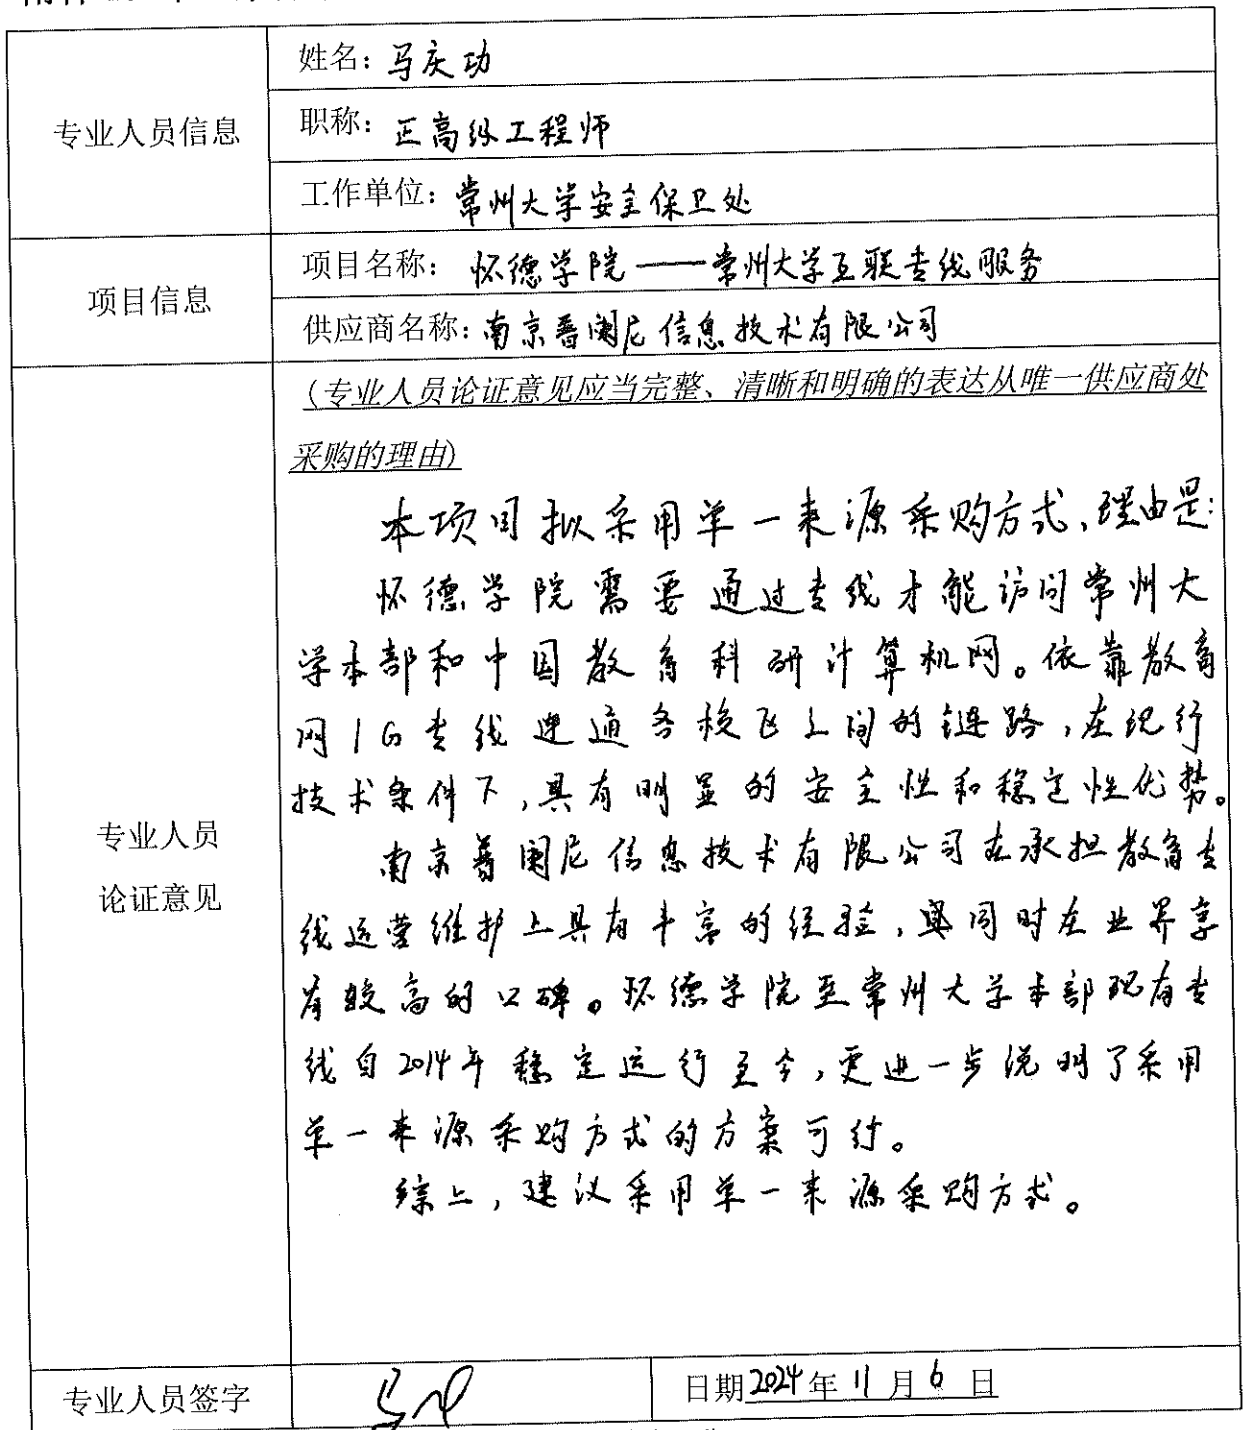 姓名：马庆功
专业人员信息
职称：正高级工程师
工作单位：常州大学安全保卫处
项目信息
项目名称：怀德学院——常州大学互联专线服务
供应商名称：南京普阂尼信息技术有限公司
专业人员
论证意见
(专业人员论证意见应当完整、清晰和明确的表达从唯一供应商处
采购的理由)
本项目拟采用单一来源采购方式，理由是：
怀德学院需要通过专线才能访问常州大
学本部和中国教育科研计算机网。依靠教育
网1G专线连通各校区之间的链路，在现行
技术条件下，具有明显的安全性和稳定性优势。
南京普阂尼信息技术有限公司在承担教育专
线运营维护上具有丰富的经验，同时在业界享
有较高的口碑。怀德学院至常州大学本部现有专
线自2014年稳定运行至今，更进一步说明了采用
单一来源采购方式的方案可行。
综上，建议采用单一来源采购方式。
专业人员签字
日期2024年11月6日